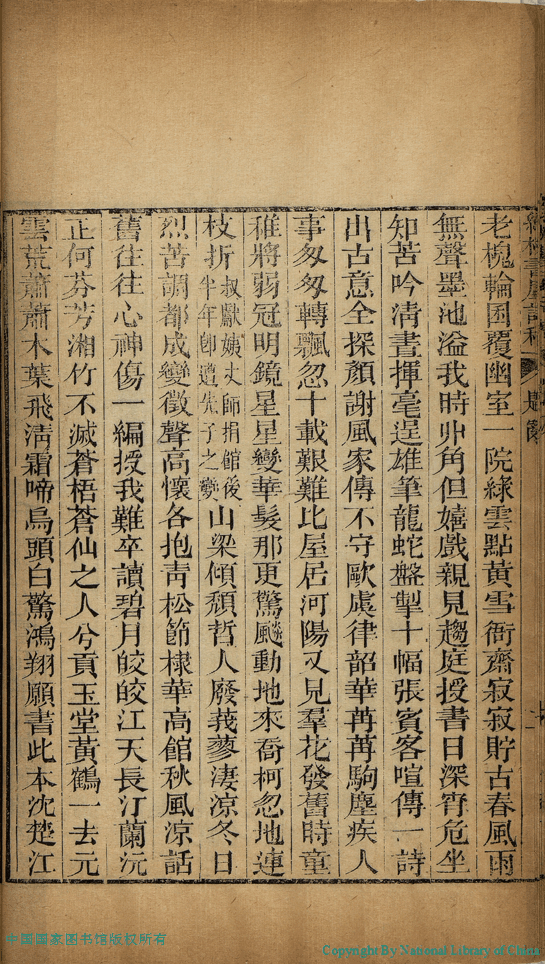 老槐輪囷覆幽室一院綠雲點黃雪衙齋寂寂貯古春風雨
無聲墨池溢我時丱角但嬉戲親見趨庭授書日深宵危坐
知苦吟清晝揮毫逞雄筆龍蛇盤掣十幅張賓客喧傳一詩
出古意全探顏謝風家傳不守歐虞律韶華苒苒駒塵疾人
事匆匆轉飄忽十載艱難比屋居河陽又見羣花發舊時童
稚將弱冠明鏡星星變華髮那更驚飈動地來喬柯忽地連
枝折叔獻姨丈師捐館後半年卽遭先子之變山梁傾頹哲人廢莪蓼淒涼冬日
烈苦調都成變徵聲高懷各抱靑松節棣華高館秋風涼話
舊往往心神傷一編授我難卒讀碧月皎皎江天長汀蘭沅
芷何芬芳湘竹不滅蒼梧蒼仙之人兮貢玉堂黃鶴一去元
雲荒蕭蕭木葉飛淸霜啼烏頭白驚鴻翔願書此本沈楚江
中国国家图书馆版权所有
Copyright By National Library of China